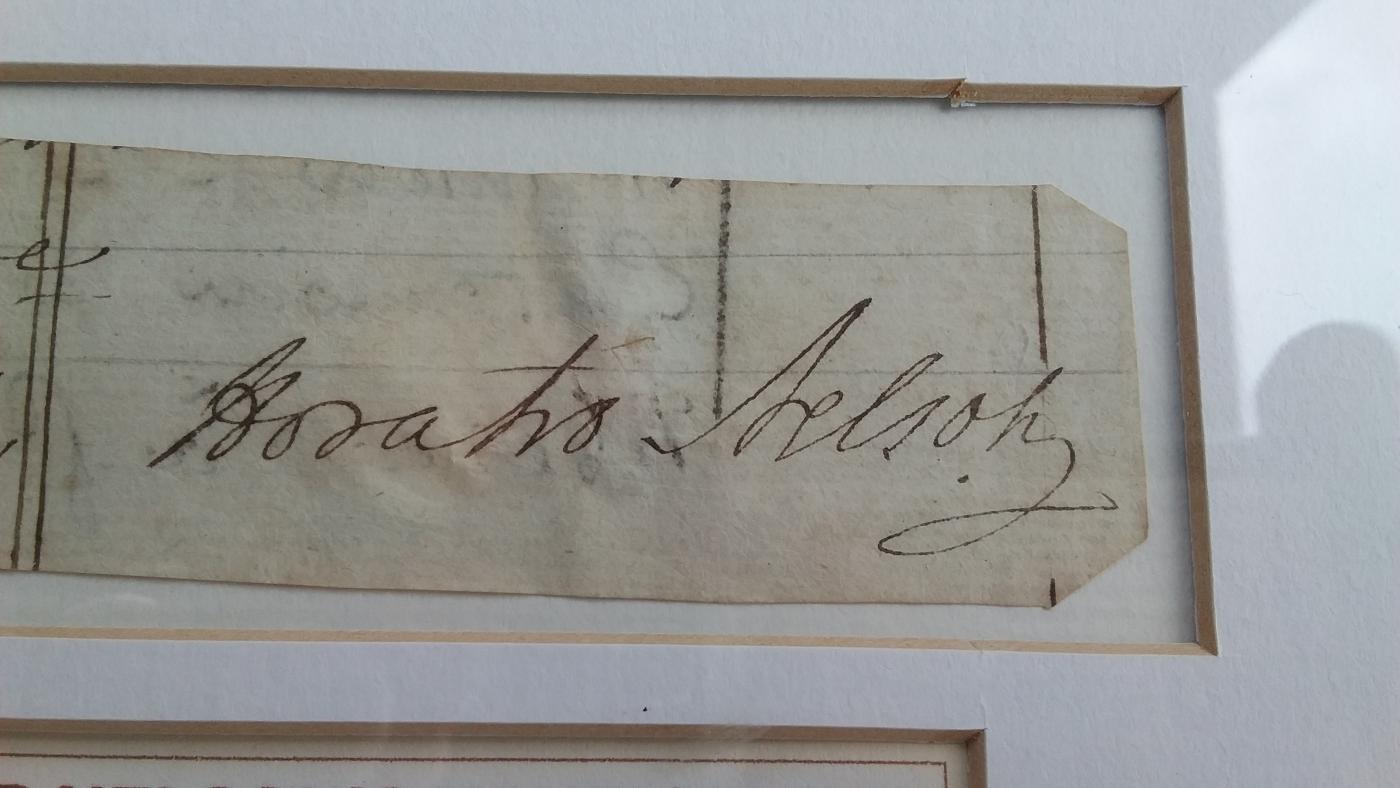 e
Horatio Nelson